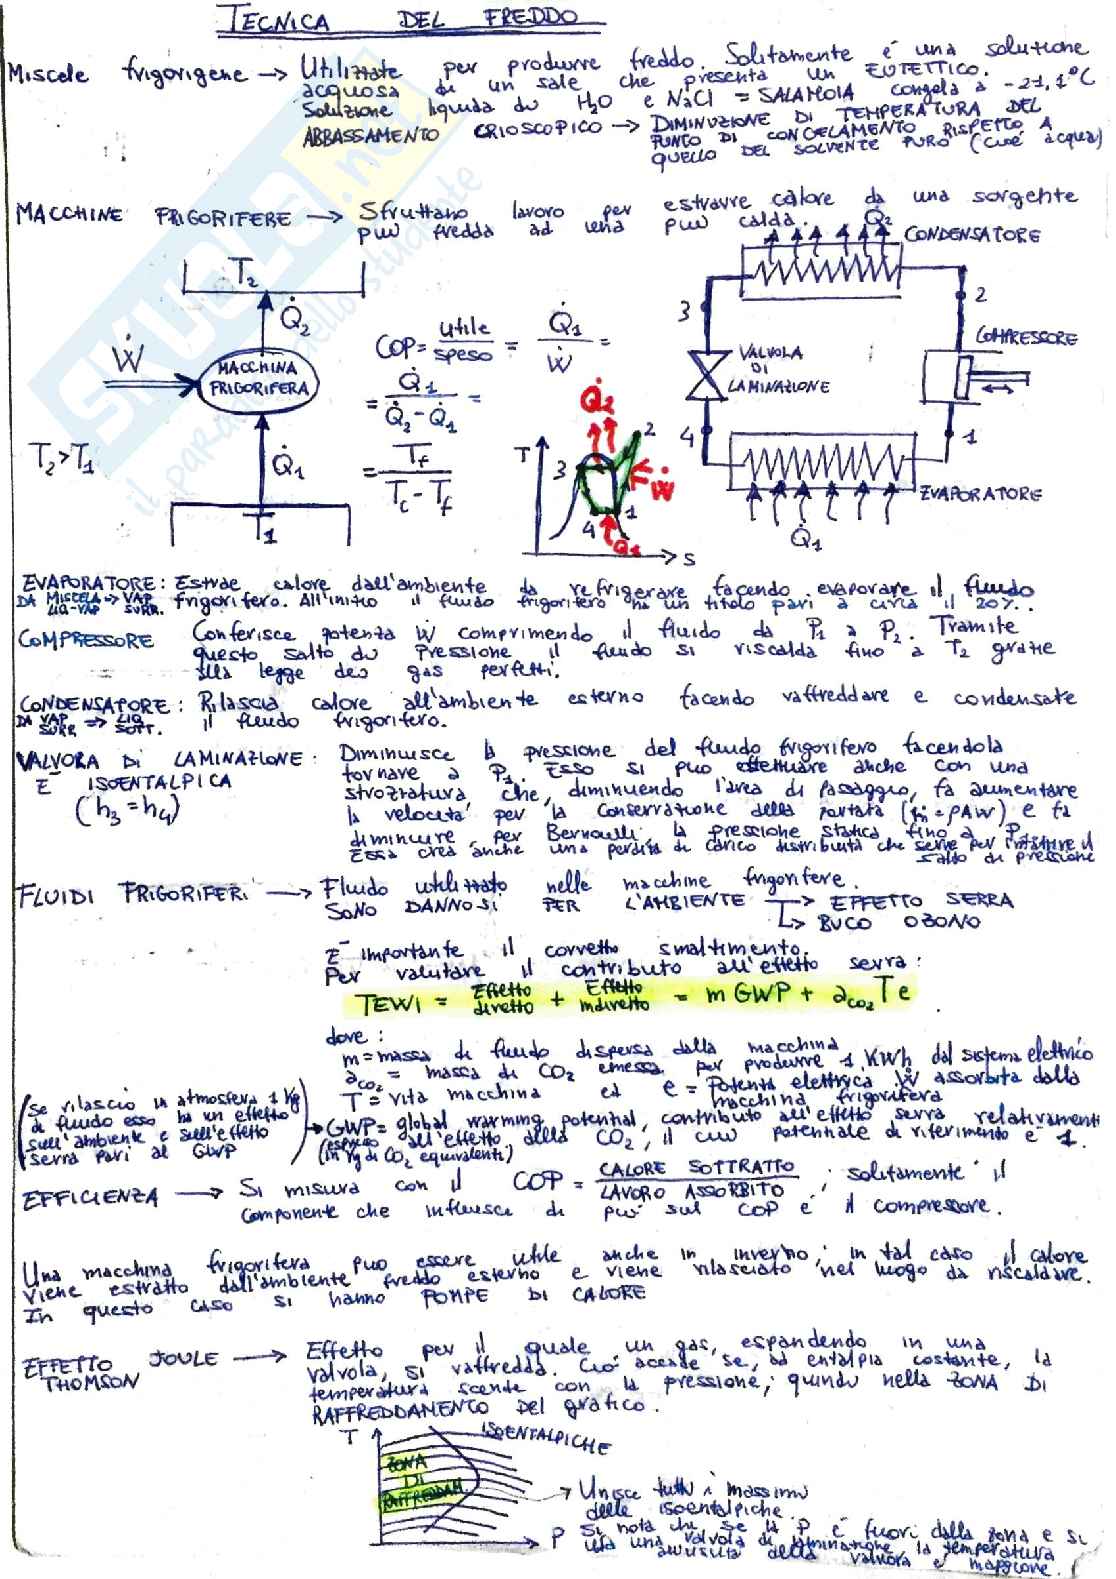 TECNICA DEL FREDDO
Miscele frigorigene → Utilizzate per produrre freddo. Solitamente è una soluzione
acquosa di un sale che presenta un EUTETTICO.
Soluzione liquida di H2O e NaCl = SALAMOIA congela a -21,1°C
ABBASSAMENTO CRIOSCOPICO → DIMINUZIONE DI TEMPERATURA DEL
PUNTO DI CONGELAMENTO RISPETTO A
QUELLO DEL SOLVENTE PURO (cioè acqua)
MACCHINE FRIGORIFERE → Sfruttano lavoro per estrarre calore da una sorgente
più fredda ad una più calda.
T2
Q̇2
Ẇ
MACCHINA
FRIGORIFERA
T2>T1
Q̇1
T1
COP = utile/speso = Q̇1/Ẇ =
= Q̇1/(Q̇2 - Q̇1) =
= Tf/(Tc - Tf)
T
Q̇2
2
3
Ẇ
4
1
Q̇1
S
Q̇2
CONDENSATORE
3
2
COMPRESSORE
VALVOLA
DI
LAMINAZIONE
4
1
EVAPORATORE
Q̇1
EVAPORATORE: Estrae calore dall'ambiente da refrigerare facendo evaporare il fluido
DA MISCELA → VAP
LIQ-VAP SURR.
frigorifero. All'inizio il fluido frigorifero ha un titolo pari a circa il 20%.
COMPRESSORE Conferisce potenza Ẇ comprimendo il fluido da P1 a P2. Tramite
questo salto di pressione il fluido si riscalda fino a T2 grazie
alla legge dei gas perfetti.
CONDENSATORE: Rilascia calore all'ambiente esterno facendo raffreddare e condensate
DA VAP SURR. ⇒ LIQ SOTT.
il fluido frigorifero.
VALVORA DI LAMINAZIONE: Diminuisce la pressione del fluido frigorifero facendola
È ISOENTALPICA
(h3=h4)
tornare a P1. Esso si può effettuare anche con una
strozzatura che, diminuendo l'area di passaggio, fa aumentare
la velocità per la conservazione della portata (ṁ=ρAW) e fa
diminuire, per Bernoulli, la pressione statica fino a P
Essa crea anche una perdita di carico distribuita che serve per il
salto di pressione
FLUIDI FRIGORIFERI → Fluido utilizzato nelle macchine frigorifere.
SONO DANNOSI PER L'AMBIENTE → EFFETTO SERRA
→ BUCO OZONO
È importante il corretto smaltimento.
Per valutare il contributo all'effetto serra:
TEWI = Effetto diretto + Effetto indiretto = m GWP + aCO2 T e
dove:
m = massa di fluido dispersa dalla macchina
aCO2 = massa di CO2 emessa per produrre 1 KWh dal sistema elettrico
T = vita macchina ed e = Potenza elettrica Ẇ assorbita dalla
macchina frigorifera
(se rilascio in atmosfera 1 kg
di fluido esso ha un effetto
sull'ambiente e sull'effetto
serra pari al GWP)
→ GWP = global warming potential, contributo all'effetto serra relativamente
(espresso in kg di CO2 equivalenti)
all'effetto della CO2, il cui potenziale di riferimento è 1.
EFFICIENZA → Si misura con il COP = CALORE SOTTRATTO/LAVORO ASSORBITO; solitamente il
componente che influisce di più sul COP è il compressore.
Una macchina frigorifera può essere utile anche in inverno; in tal caso il calore
viene estratto dall'ambiente freddo esterno e viene rilasciato nel luogo da riscaldare.
In questo caso si hanno POMPE DI CALORE
EFFETTO JOULE → Effetto per il quale un gas, espandendo in una
THOMSON
valvola, si raffredda. Ciò accade se, ad entalpia costante, la
temperatura scende con la pressione; quindi nella ZONA DI
RAFFREDDAMENTO del grafico.
T
ISOENTALPICHE
ZONA
DI
RAFFREDDAM.
P
→ Unisce tutti i massimi
delle isoentalpiche.
Si nota che se la P è fuori dalla zona e si
usa una valvola di laminazione la temperatura
all'uscita della valvola è maggiore.
SKUOLA.net
il paradiso dello studente